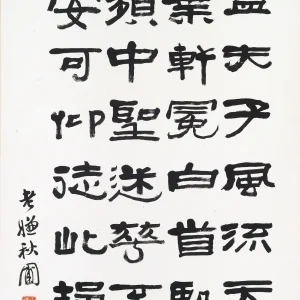 孟夫子風流天
棄軒冕白首臥
頻中聖迷花不
安可仰徒此揖
老嫌秋圃